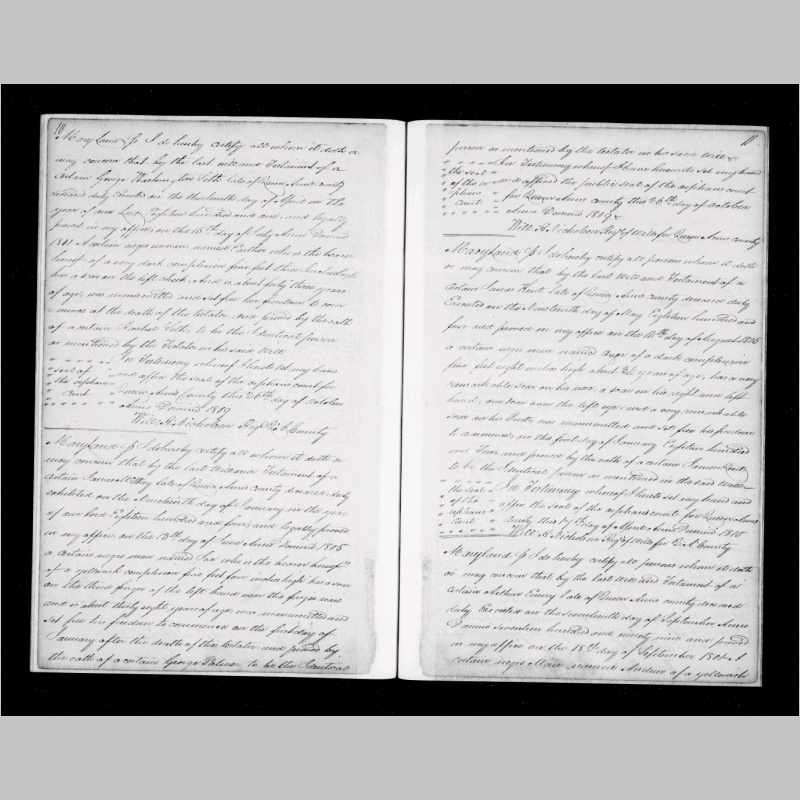 10
Maryland Ss I do hereby certify all whom it doth or
may concern that by the last will and Testament of a
certain George late of Queen Anns county
deceased duly executed on the thirteenth day of April in the
year of our Lord Eighteen hundred and one, and legally
proved in my office on the 15th day of July Anno Domini
1801 A certain negro woman named Esther who is the bearer
hereof of a very dark complexion five feet three Inches high
has a scar on the left cheek, And is about forty three years
of age, was manumitted and set free her freedom to com
mence at the death of the testator and proved by the oath
of a certain Rachel to be the Identical person
as mentioned by the Testator in his said Will
In Testimony whereof I have set my hand
seal of and affix the seal of the orphans court for
the orphans Queen Anns County this 26th day of October
Court Anno Domini 1809
Will H. Nicholson Regr County
Maryland Ss I do hereby certify all whom it doth or
may concern that by the last Will and Testament of a
certain Samuel late of Queen Anns county deceased duly
exhibited on the Nineteenth day of January in the year
of our Lord Eighteen hundred and four, and legally proved
in my office on the 13th day of June Anno Domini 1805
a certain negro man named who is the bearer hereof
of a yellowish complexion five feet four inches high has a scar
on the third finger of the left hand near the finger nail
and is about thirty eight years of age was manumitted and
set free his freedom to commence on the first day of
January after the death of the testator and proved by
the oath of a certain George Palmer to be the Identical
11
person as mentioned by the testator in his said Will &
In Testimony whereof I have hereunto set my hand
the seal and affixed the public seal of the orphans court
of the or
phans for Queen Anns county this 26th day of October
court Anno Domini 1809 &
Will H. Nicholson Regr of Wills for Queen Anns county
Maryland Ss I do hereby certify all persons whom it doth
or may concern that by the last Will and Testament of a
certain James late of Queen Anns county deceased duly
Executed on the Nineteenth day of May Eighteen hundred and
five and proved in my office on the day of August 1805
a certain negro man named of a dark complexion
five feet eight inches high about years of age, has a very
remarkable scar on his a scar on his right arm left
hand, one scar over the left eye and a very remarkable
scar on his was manumitted and set free his freedom
to commence on the first day of January Eighteen hundred
and and proved by the oath of a certain
to be the Identical person as mentioned in the said Will
the seal In Testimony whereof I have set my hand and
of the affix the seal of the orphans court for Queen Anns
orphans
court county this day of Anno Domini 1810
Will H. Nicholson Regr of Wills for Q A County
Maryland Ss I do hereby certify all persons whom it doth
or may concern that by the last Will and Testament of a
certain Arthur Emory late of Queen Anns county deceased
duly Executed on the seventeenth day of September Anno
Domini Seventeen hundred and ninety nine and proved
in my office on the 18th day of September A
certain negro Man named Andrew of a yellowish